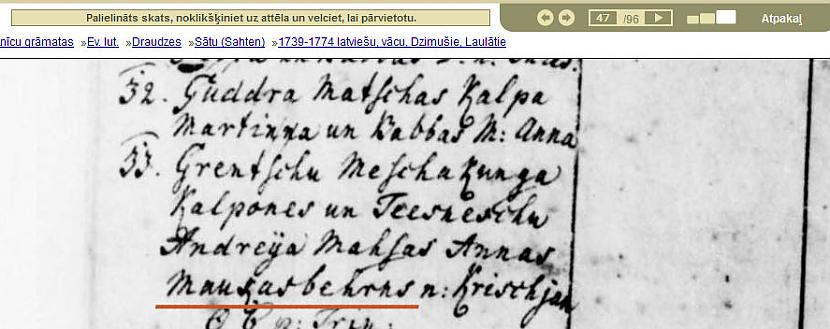 Palielināts skats, noklikšķiniet uz attēla un velciet, lai pārvietotu.
47 /96 Atpakaļ
nīcu grāmatas »Ev. lut. »Draudzes »Sātu (Sahten) »1739-1774 latviešu, vācu, Dzimušie, Laulātie
32. Guddra Matschas Kalpa
Martinna un Babbas M: Anna
33. Grentschu Meschakunga
Kalpones un Teesneschu
Andreija Mahsas Annas
Maukasbehrns n: Krischjan